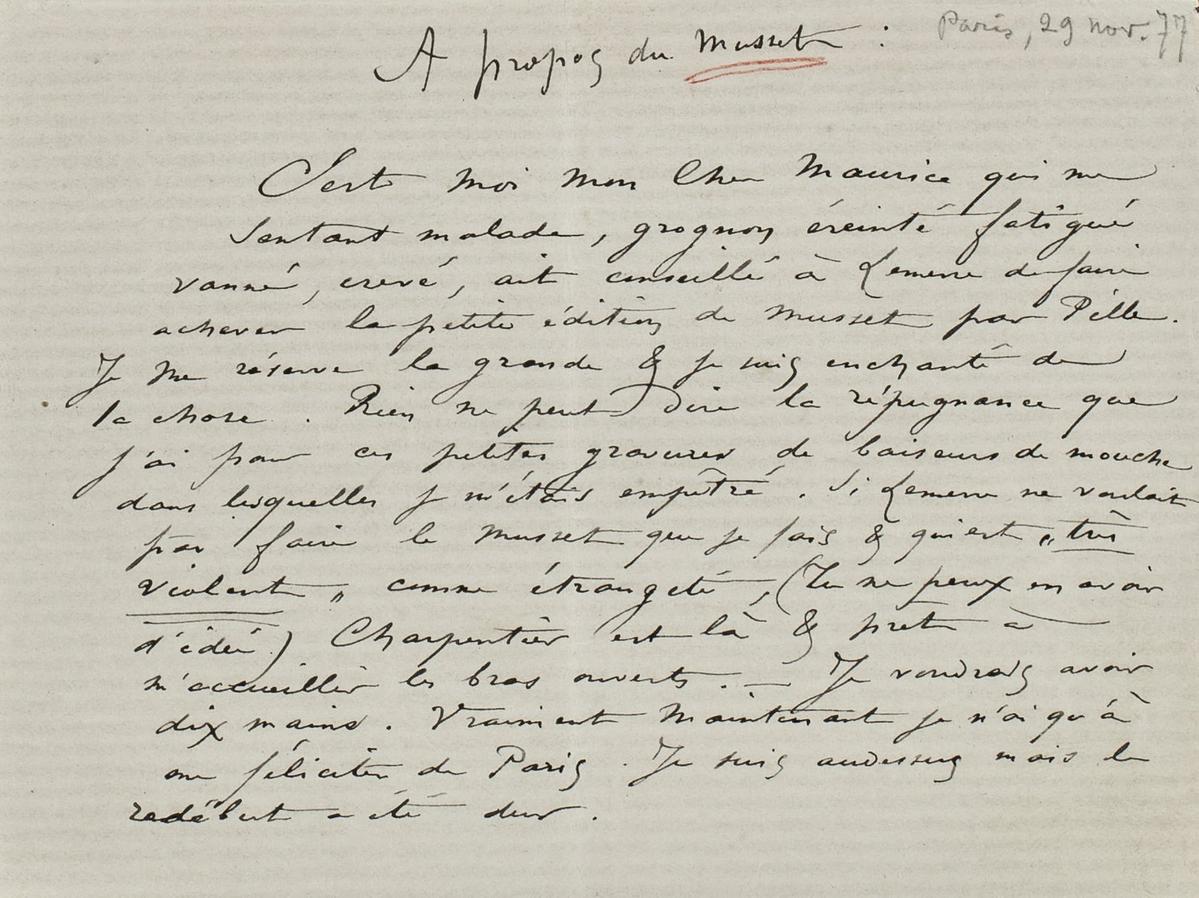 Paris, 29 nov. 77
A propos du Musset :
C'est moi mon cher Maurice qui me
sentant malade, grognon éreinté fatigué
vanné, crevé, ait conseillé à Lemerre de faire
achever la petite édition de Musset par Pille.
Je me réserve la grande & je suis enchanté de
la chose. Rien ne peut dire la répugnance que
j'ai pour ces petites gravures de baiseurs de mouche
dans lesquelles je m'étais empêtré. Si Lemerre ne voulait
pas faire le Musset que je fais & qui est „très
violent„ comme étrangeté, (Tu ne peux en avoir
d'idée) Charpentier est là & prêt à
m'accueillir les bras ouverts. — Je voudrais avoir
dix mains. Vraiment maintenant je n'ai qu'à
me féliciter de Paris. Je suis audessus mais le
redébut a été dur.